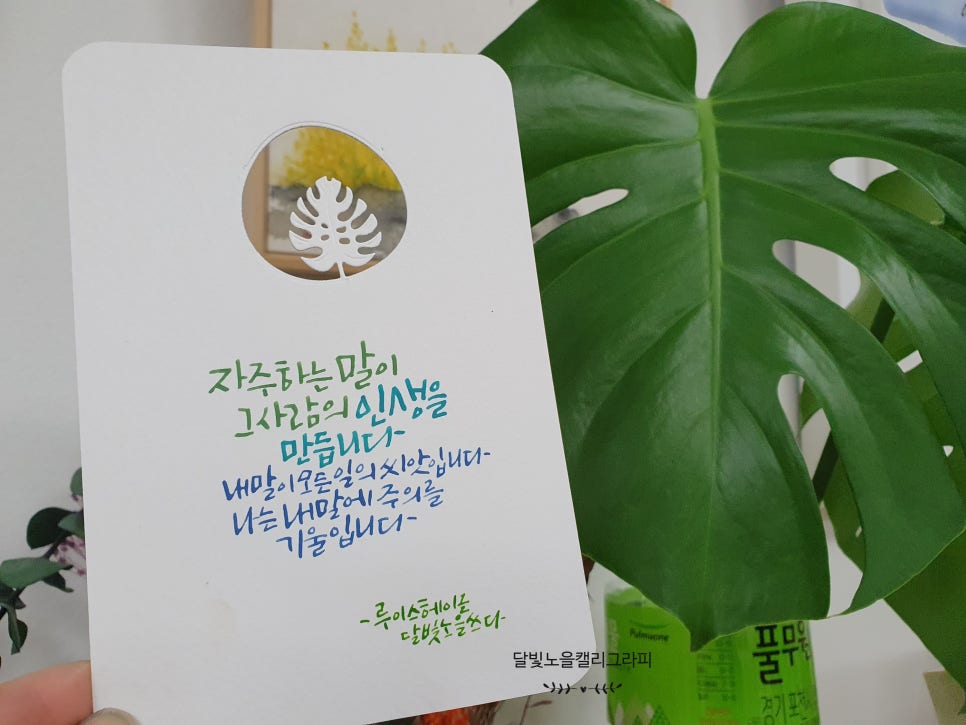 자주하는 말이
그사람의 인생을
만듭니다
내말이 모든일의 씨앗입니다
나는 내말에 주의를
기울입니다
-루이스헤이를
달빛노을쓰다-
달빛노을캘리그라피
Pulmuone
풀무원